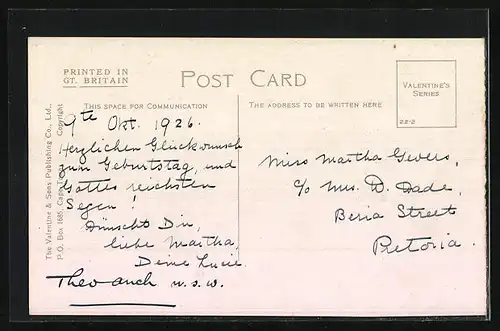 PRINTED IN
GT. BRITAIN
POST CARD
VALENTINE'S
SERIES
22-2
THIS SPACE FOR COMMUNICATION
THE ADDRESS TO BE WRITTEN HERE
The Valentine & Sons Publishing Co., Ltd.,
P.O. Box 1685, Cape T Copyright
9te Okt. 1926.
Herzlichen Glückwunsch
zum Geburtstag, und
Gottes reichsten
Segen!
Wünscht Dir,
liebe Martha,
Deine Lucie.
Theo auch u.s.w.
Miss Martha Gevers,
c/o Mrs. D. Dade,
Beria Street
Pretoria.